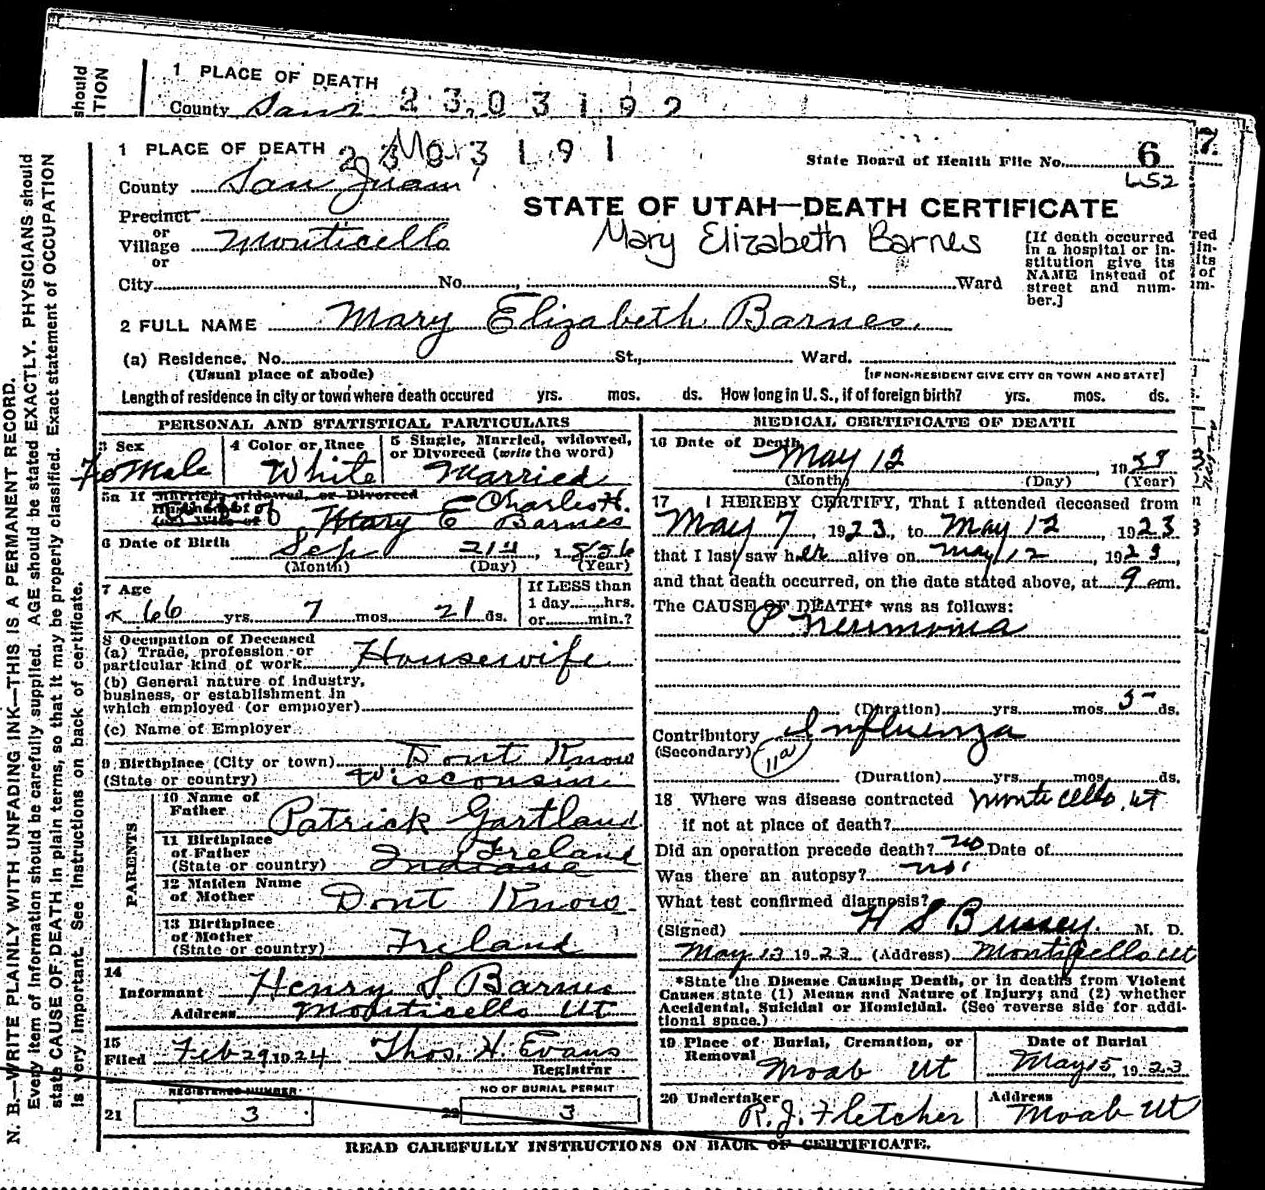 should
TION
1 PLACE OF DEATH
County San 2 3 0 3 1 9 2
1 PLACE OF DEATH 2 3 0 3 1 9 1
State Board of Health File No. 6 7
652
County San Juan
STATE OF UTAH—DEATH CERTIFICATE
Precinct
or
Village Monticello
Mary Elizabeth Barnes
or
[If death occurred in a hospital or in-
stitution give its
NAME instead of
street and num-
ber.]
City No. St., Ward
2 FULL NAME Mary Elizabeth Barnes.
(a) Residence. No. St., Ward.
(Usual place of abode) [IF NON-RESIDENT GIVE CITY OR TOWN AND STATE]
Length of residence in city or town where death occured yrs. mos. ds. How long in U. S., if of foreign birth? yrs. mos. ds.
PERSONAL AND STATISTICAL PARTICULARS
3 Sex 4 Color or Race 5 Single, Married, widowed,
or Divorced (write the word)
FeMale White Married
5a If Married, widowed, or Divorced
Charles H.
Mary E Barnes
6 Date of Birth Sep 21 1856
(Month) (Day) (Year)
7 Age If LESS than
1 day hrs.
66 yrs. 7 mos. 21 ds. or min.?
8 Occupation of Deceased
(a) Trade, profession or
particular kind of work Housewife
(b) General nature of industry,
business, or establishment in
which employed (or employer)
(c) Name of Employer
9 Birthplace (City or town) Dont Know
(State or country) Wisconsin
PARENTS
10 Name of
Father Patrick Gartland
11 Birthplace
of Father Ireland
(State or country) Indiana
12 Maiden Name
of Mother Dont Know
13 Birthplace
of Mother
(State or country) Ireland
14
Informant Henry S Barnes
Address Monticello Ut
15
Filed Feb 29 1924 Thos. H. Evans
Registrar
REGISTERED NUMBER NO OF BURIAL PERMIT
21 3 22 3
MEDICAL CERTIFICATE OF DEATH
16 Date of Death
May 12, 19
(Month) (Day) (Year)
17 I HEREBY CERTIFY, That I attended deceased from
May 7, 1923, to May 12, 1923
that I last saw her alive on May 12, 1923,
and that death occurred, on the date stated above, at 9 am.
The CAUSE OF DEATH* was as follows:
Pneumonia
(Duration) yrs. mos. 5 ds.
Contributory Influenza
(Secondary) 11a
(Duration) yrs. mos. ds.
18 Where was disease contracted Monticello, Ut
if not at place of death?
Did an operation precede death? no Date of
Was there an autopsy? no.
What test confirmed diagnosis?
(Signed) H S M. D.
May 13 1923 (Address) Monticello Ut
*State the Disease Causing Death, or in deaths from Violent
Causes state (1) Means and Nature of Injury; and (2) whether
Accidental, Suicidal or Homicidal. (See reverse side for addi-
tional space.)
19 Place of Burial, Cremation, or
Removal Date of Burial
Moab Ut May 15, 1923
20 Undertaker Address
R. J. Fletcher Moab Ut
READ CAREFULLY INSTRUCTIONS ON BACK OF CERTIFICATE.
N. B.—WRITE PLAINLY WITH UNFADING INK—THIS IS A PERMANENT RECORD.
Every item of information should be carefully supplied. AGE should be stated EXACTLY. PHYSICIANS should
state CAUSE OF DEATH in plain terms, so that it may be properly classified. Exact statement of OCCUPATION
is very important. See instructions on back of certificate.